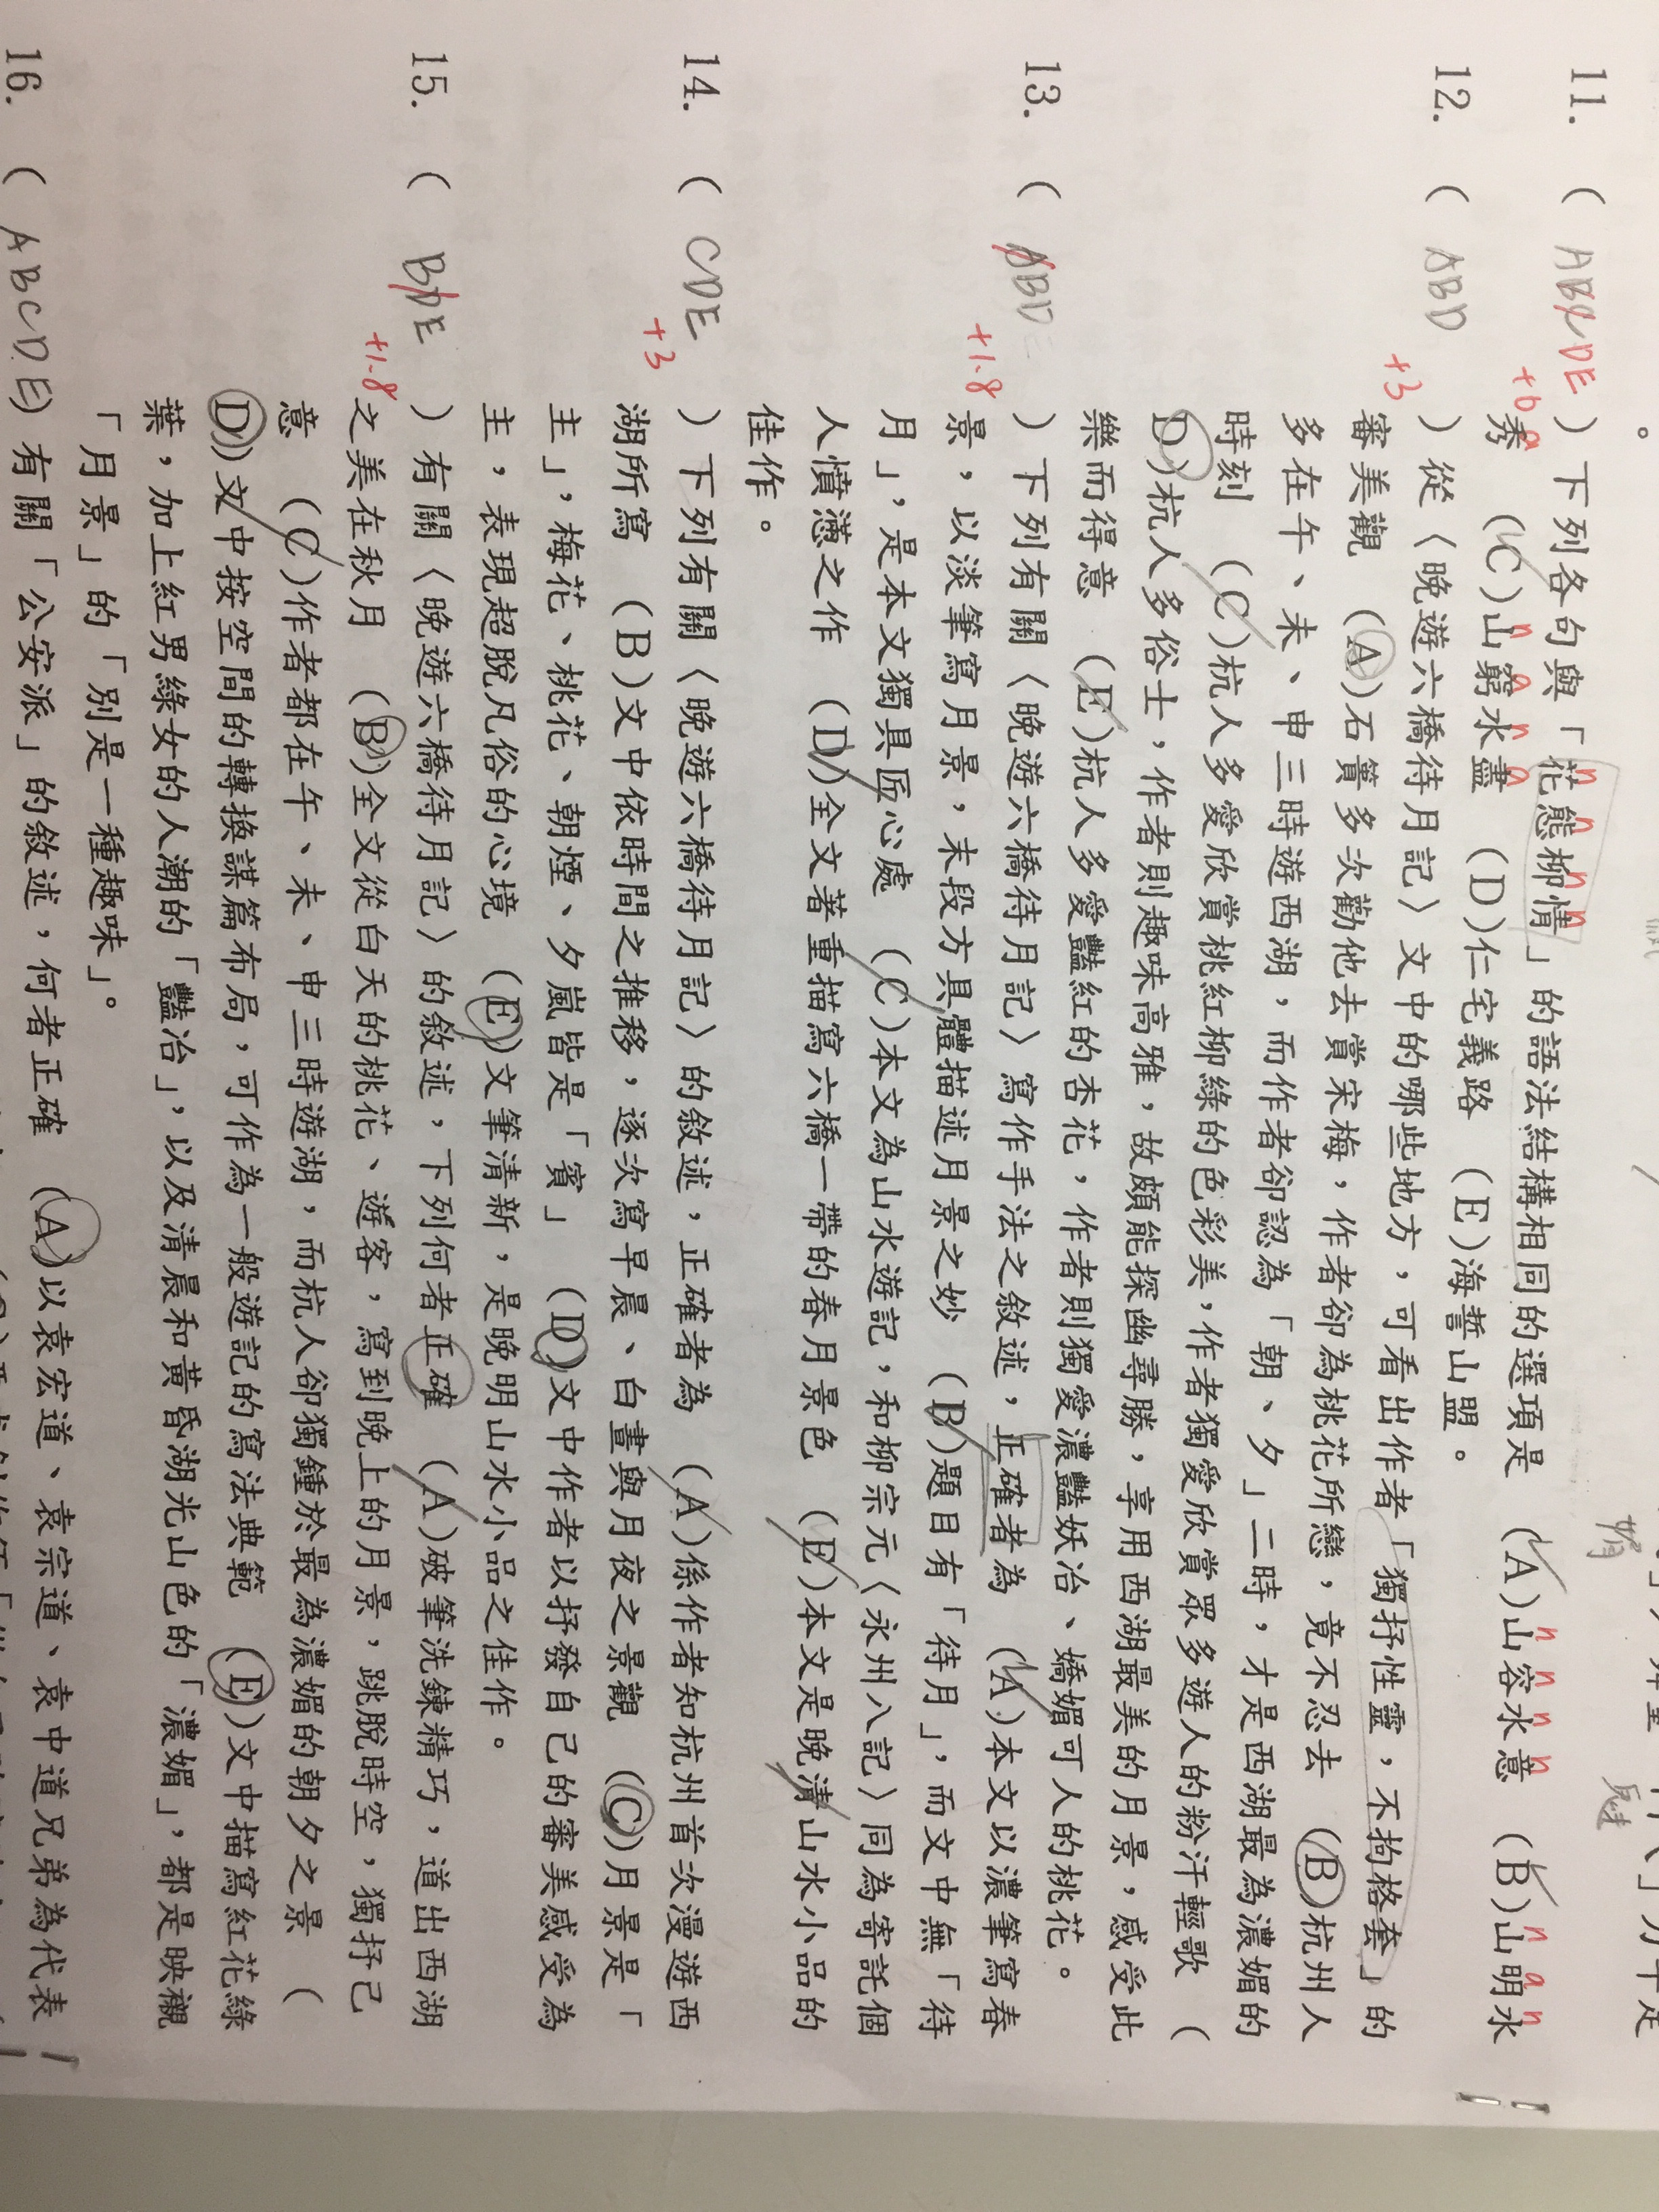 。
11. ( ABCDE ) 下列各句與「花態柳情」的語法結構相同的選項是 (A)山容水意 (B)山明水
+0
秀 (C)山窮水盡 (D)仁宅義路 (E)海誓山盟。
12. ( ABD ) 從〈晚遊六橋待月記〉文中的哪些地方,可看出作者「獨抒性靈,不拘格套」的
+3
審美觀 (A)石簣多次勸他去賞宋梅,作者卻為桃花所戀,竟不忍去 (B)杭州人
多在午、未、申三時遊西湖,而作者卻認為「朝、夕」二時,才是西湖最為濃媚的
時刻 (C)杭人多愛欣賞桃紅柳綠的色彩美,作者獨愛欣賞眾多遊人的粉汗輕歌 (
D)杭人多俗士,作者則趣味高雅,故頗能探幽尋勝,享用西湖最美的月景,感受此
樂而得意 (E)杭人多愛豔紅的杏花,作者則獨愛濃豔妖冶、嬌媚可人的桃花。
13. ( ABD ) 下列有關〈晚遊六橋待月記〉寫作手法之敘述,正確者為 (A)本文以濃筆寫春
+1.8
景,以淡筆寫月景,末段方具體描述月景之妙 (B)題目有「待月」,而文中無「待
月」,是本文獨具匠心處 (C)本文為山水遊記,和柳宗元〈永州八記〉同為寄託個
人憤懣之作 (D)全文著重描寫六橋一帶的春月景色 (E)本文是晚清山水小品的
佳作。
14. ( CDE ) 下列有關〈晚遊六橋待月記〉的敘述,正確者為 (A)係作者知杭州首次漫遊西
+3
湖所寫 (B)文中依時間之推移,逐次寫早晨、白晝與月夜之景觀 (C)月景是「
主」,梅花、桃花、朝煙、夕嵐皆是「賓」 (D)文中作者以抒發自己的審美感受為
主,表現超脫凡俗的心境 (E)文筆清新,是晚明山水小品之佳作。
15. ( BDE ) 有關〈晚遊六橋待月記〉的敘述,下列何者正確 (A)破筆洗鍊精巧,道出西湖
+1.8
之美在秋月 (B)全文從白天的桃花、遊客,寫到晚上的月景,跳脫時空,獨抒己
意 (C)作者都在午、未、申三時遊湖,而杭人卻獨鍾於最為濃媚的朝夕之景 (
D)文中按空間的轉換謀篇布局,可作為一般遊記的寫法典範 (E)文中描寫紅花綠
葉,加上紅男綠女的人潮的「豔冶」,以及清晨和黃昏湖光山色的「濃媚」,都是映襯
「月景」的「別是一種趣味」。
16. ( ABCDE ) 有關「公安派」的敘述,何者正確 (A)以袁宏道、袁宗道、袁中道兄弟為代表